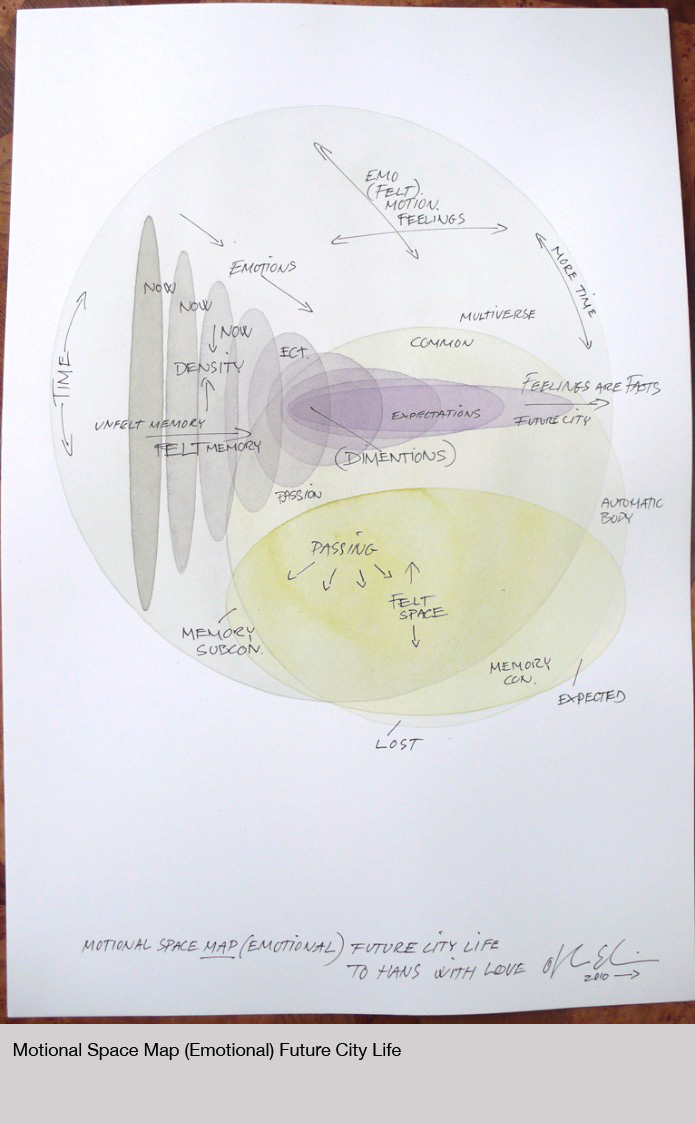 EMO
(FELT).
MOTION.
FEELINGS
MORE TIME
EMOTIONS
NOW
NOW
NOW
ECT.
DENSITY
MULTIVERSE
COMMON
TIME
FEELINGS ARE FACTS
EXPECTATIONS
FUTURE CITY
UNFELT MEMORY
FELT MEMORY
(DIMENTIONS)
PASSION
AUTOMATIC
BODY
PASSING
FELT
SPACE
MEMORY
SUBCON.
MEMORY
CON.
EXPECTED
LOST
MOTIONAL SPACE MAP (EMOTIONAL) FUTURE CITY LIFE
TO HANS WITH LOVE
2010
Motional Space Map (Emotional) Future City Life